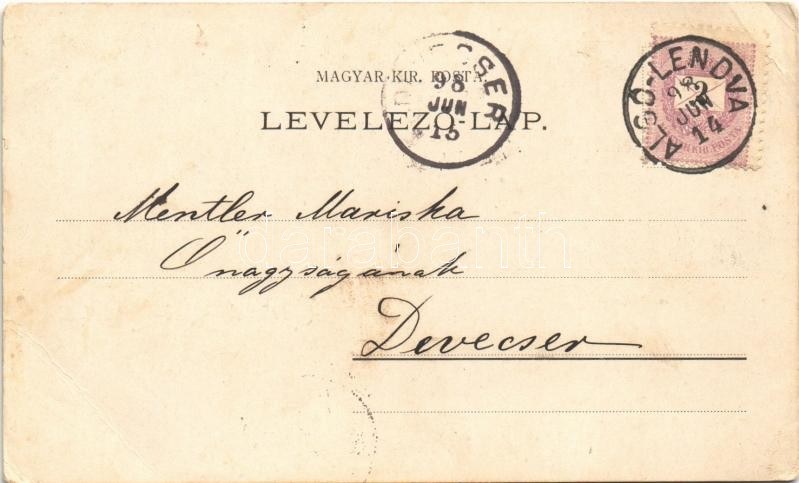 MAGYAR KIR. POSTA.
LEVELEZŐ-LAP.
DEVECSER
98
JUN
15
ALSÓ-LENDVA
98
JUN
14
2
Mentler Mariska
Őnagyságának
Devecser
darabanth